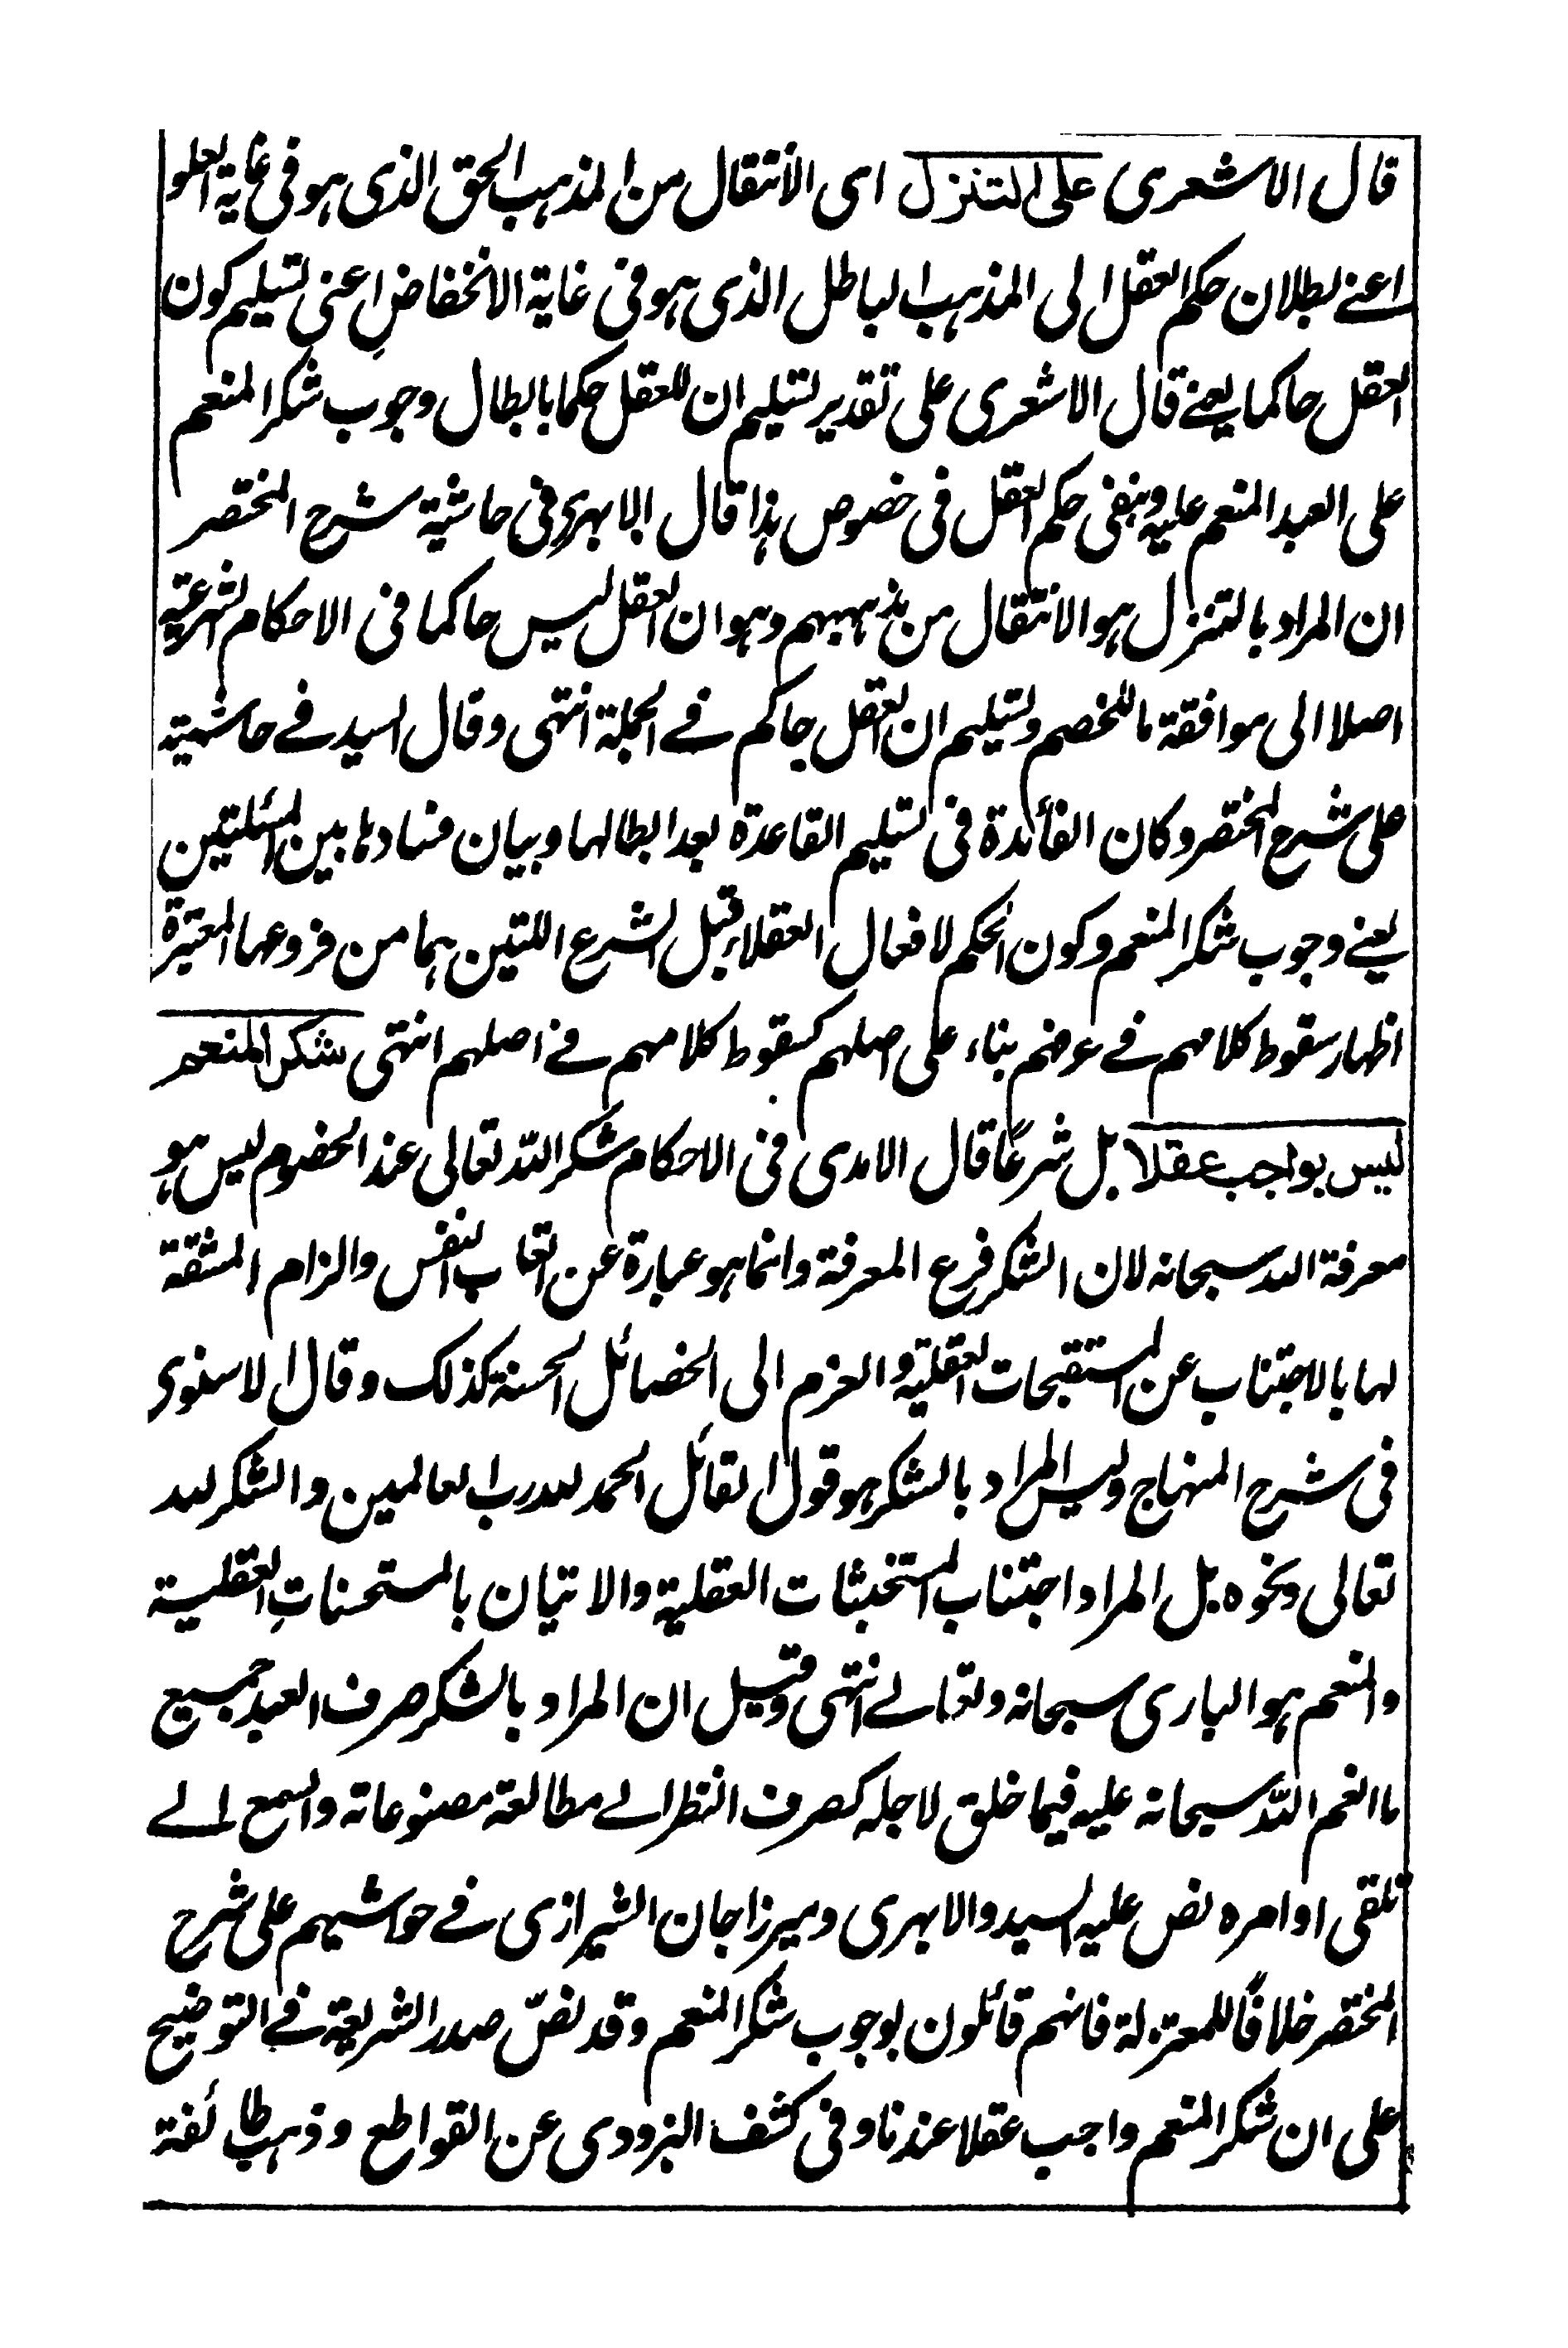 قال الاشعرى على التنزل اى الانتقال من المذهب الحق الذى هو فى غاية العلو
اعنے بطلان حكم العقل الى المذهب الباطل الذى هو فى غاية الانخفاض اعنى تسليم كون
العقل حاكما يعنے قال الاشعرى على تقدير تسليم ان للعقل حكما بابطال وجوب شكر المنعم
على العبد المنعم عليه وبنفى حكم العقل فى خصوص هذا قال الابهرى فى حاشية شرح المختصر
ان المراد بالتنزل هو الانتقال من مذهبهم وهو ان العقل ليس حاكما فى الاحكام الشرعية
اصلا الى موافقة ما للخصم وتسليم ان العقل حاكم فے الجملة انتهى وقال السيد فے حاشيته
على شرح المختصر وكان الفائدة فى تسليم القاعدة بعد ابطالها وبيان فسادها بين المسئلتين
يعنے وجوب شكر المنعم وكون الحكم لافعال العقلاء قبل الشرع اللتين هما من فروعها المعتبرة
اظهار سقوط كلامهم فے عرضم بناء على اصلهم كسقوط كلامهم فے اصلهم انتهى شكر المنعم
ليس بواجب عقلا بل شرعًا قال الامدى فى الاحكام شكر الله تعالى عند الخصوم ليس هو
معرفة الله سبحانه لان الشكر فرع المعرفة وانما هو عبارة عن اتعاب النفس والزام المشقة
لها بالاجتناب عن المستقبحات العقلية والعزم الى الخصائل الحسنة كذلك وقال الاسنوى
فى شرح المنهاج وليس المراد بالشكر هو قول القائل الحمد لله رب العالمين والشكر لله
تعالى ونحوه بل المراد اجتناب المستخبثات العقلية والاتيان بالمستحسنات العقلية
والمنعم هو البارى سبحانه وتعالے انتهى وقيل ان المراد بالشكر صرف العبد جميع
ما انعم الله سبحانه عليه فيما خلق لاجله كصرف النظر الے مطالعة مصنوعاته والسمع الے
تلقى اوامره نص عليه السيد والابهرى وميرزاجان الشيرازى فے حواشيهم على شرح
المختصر خلافًا للمعتزلة فانهم قائلون بوجوب شكر المنعم وقد نصّ صدر الشريعة فے التوضيح
على ان شكر المنعم واجب عقلا عندنا وفى كشف البزدوى عن القواطع وذهب طائفة